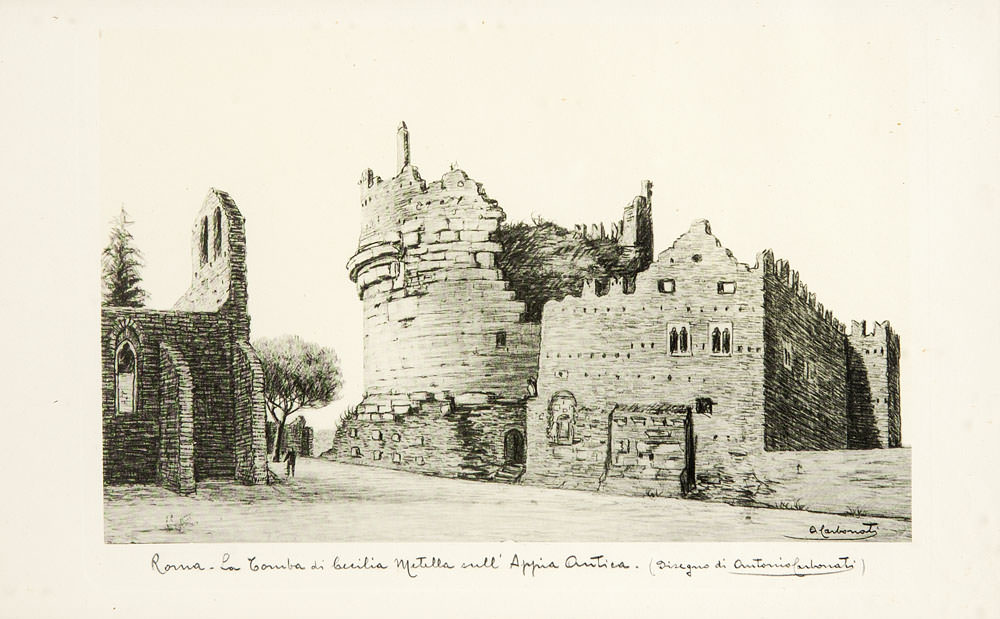 A Carbonati
Roma - La Tomba di Cecilia Metella sull' Appia Antica. (Disegno di Antonio Carbonati)